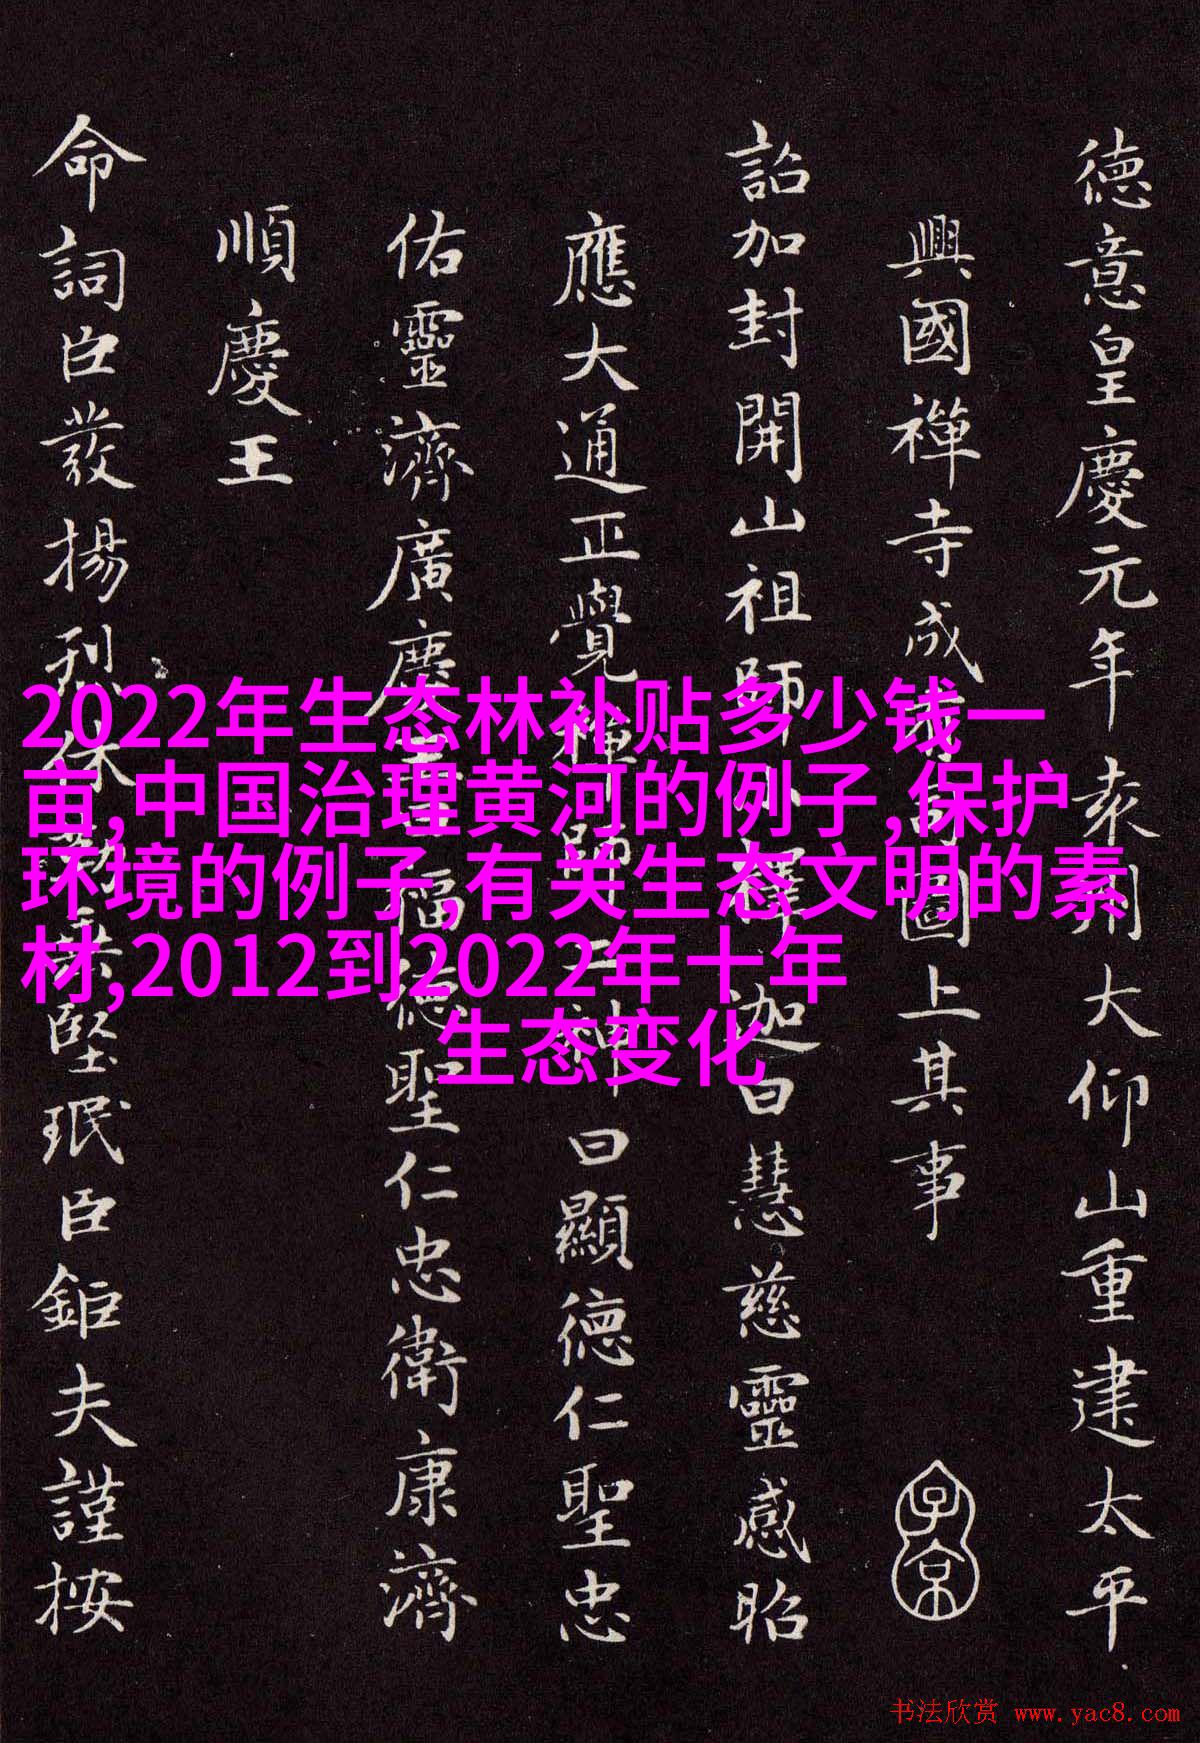 德意皇慶元年表朔大仰山重建太平
興國禪寺成圖上其事
詔加封開山祖師釋迦曰慧慈靈感昭
應大通正覺禪師二神曰顯德仁聖忠
佑靈濟廣慶王福德聖仁忠衛康濟
順慶王
命詞臣發揚烈休堅珉臣鉅夫謹按
2022年生态林补贴多少钱一
亩,中国治理黄河的例子,保护
环境的例子,有关生态文明的素
材,2012到2022年十年
生态变化
书法欣赏 www.yac8.com